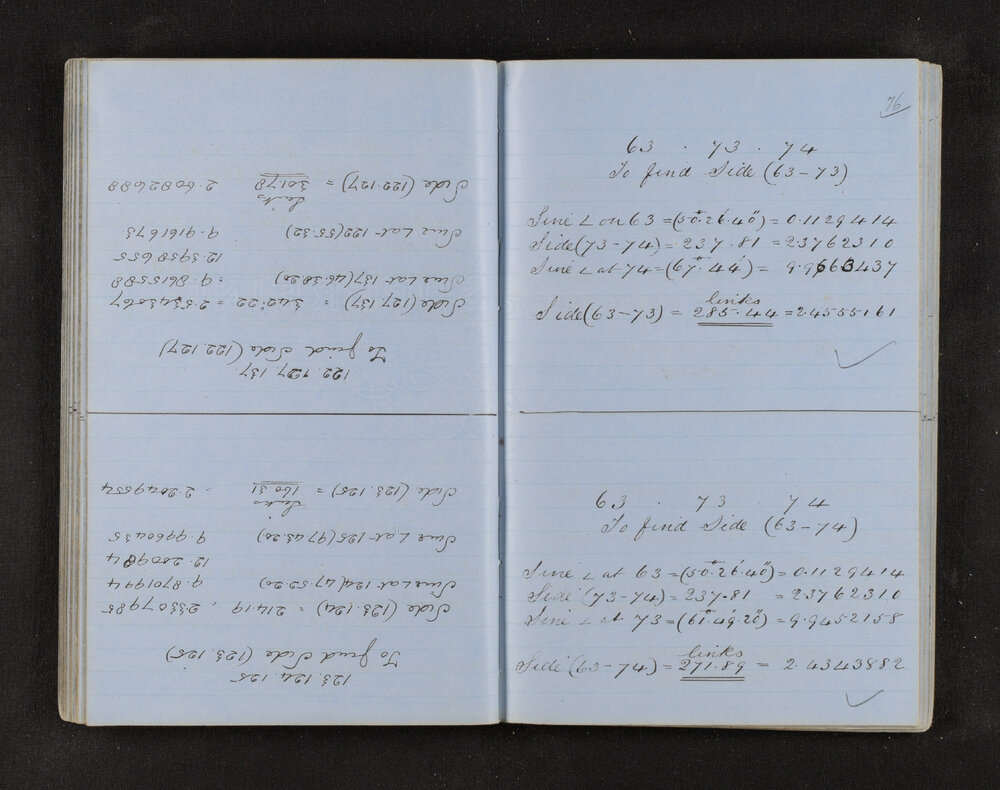 76
63 . 73 . 74
To find Side (63-73)
Sine ∠ on 63 = (50°.26'.40") = 0.1129414
Side (73-74) = 237.81 = 23762310
Sine ∠ at 74 = (67°.44') = 9.9663437
links
Side (63-73) = 285.44 = 2.4555161
63 . 73 . 74
To find Side (63-74)
Sine ∠ at 63 = (50°.26'.40") = 0.1129414
Side (73-74) = 237.81 = 23762310
Sine ∠ at 73 = (61°.49'.20") = 9.9452158
links
Side (63-74) = 271.89 = 2.4343882
123. 124. 125
To find Side (123.125)
Side (123.124) = 214.19 = 2.3307985
Sine ∠ at 124 (47.52.20) 9.8701994
Sine ∠ at 125 (97.43.20) 9.9960435
Links
Side (123.125) = 160.31 = 2.2049554
122. 127. 137
To find Side (122.127)
Side (127.137) = 342.22 = 2.5343067
Sine ∠ at 137 (46.38.20) 9.8615588
12.3958655
Sine ∠ at 122 (55.32) 9.9161673
Links
Side (122.127) = 301.78